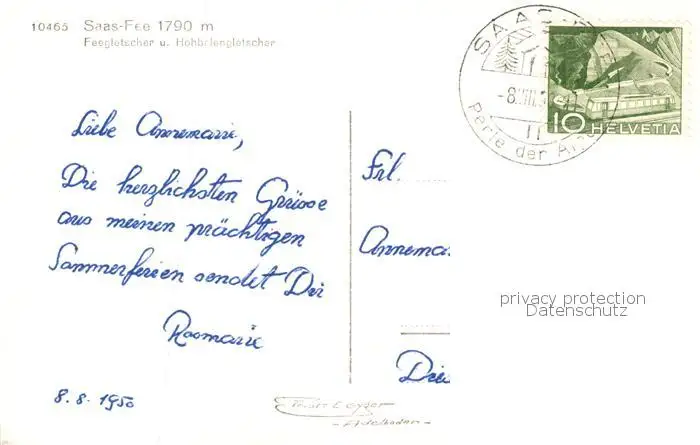 10465 Saas-Fee 1790 m
Feegletscher u. Hohbalengletscher
SAAS-FEE
-8.VIII.
Perle der Al
10 HELVETIA
Liebe Annemarie,
Die herzlichsten Grüsse
aus meinen prächtigen
Sommerferien sendet Dir
Rosmarie
8.8.1950
Frl.
Annemar
Die
privacy protection
Datenschutz
- Adelboden -